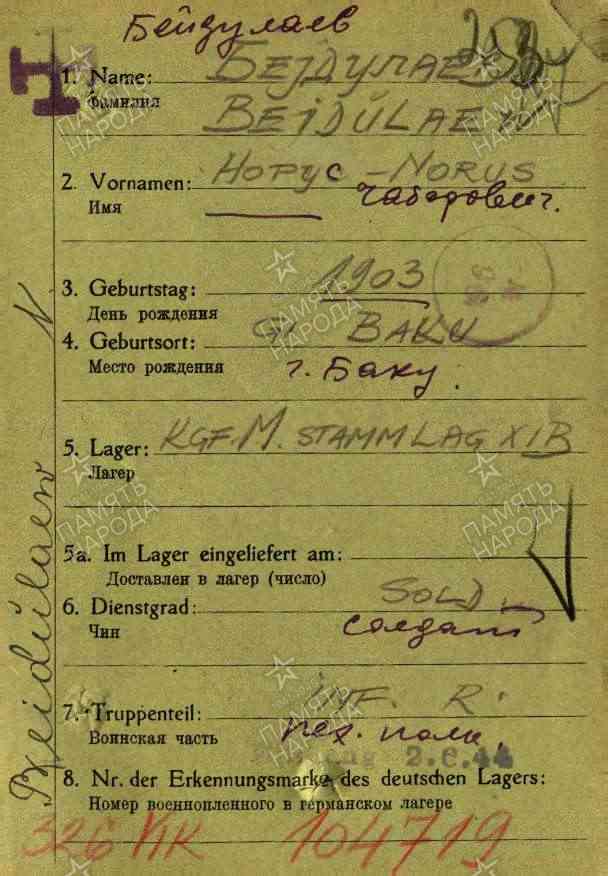 Бейдулаев
1. Name: БЕЈДУЛАЕВ
Фамилия BEIDULAEW
2. Vornamen: НОРУС - NORUS
Имя Чаберович.
3. Geburtstag: 1903
День рождения
4. Geburtsort: BAKU
Место рождения г. Баку.
5. Lager: KGF. M. STAMMLAG XIB
Лагер
5a. Im Lager eingeliefert am:
Доставлен в лагер (число)
6. Dienstgrad: SOLD.
Чин солдат
7. Truppenteil: INF. R.
Воинская часть пех. полк,
2.6.44
8. Nr. der Erkennungsmarke des deutschen Lagers:
Номер военнопленного в германском лагере
326 VIK 104719
Beidulaew N
ПАМЯТЬ
НАРОДА
ПАМЯТЬ
НАРОДА
ПАМЯТЬ
НАРОДА
ПАМЯТЬ
НАРОДА
ПАМЯТЬ
НАРОДА
ПАМЯТЬ
НАРОДА